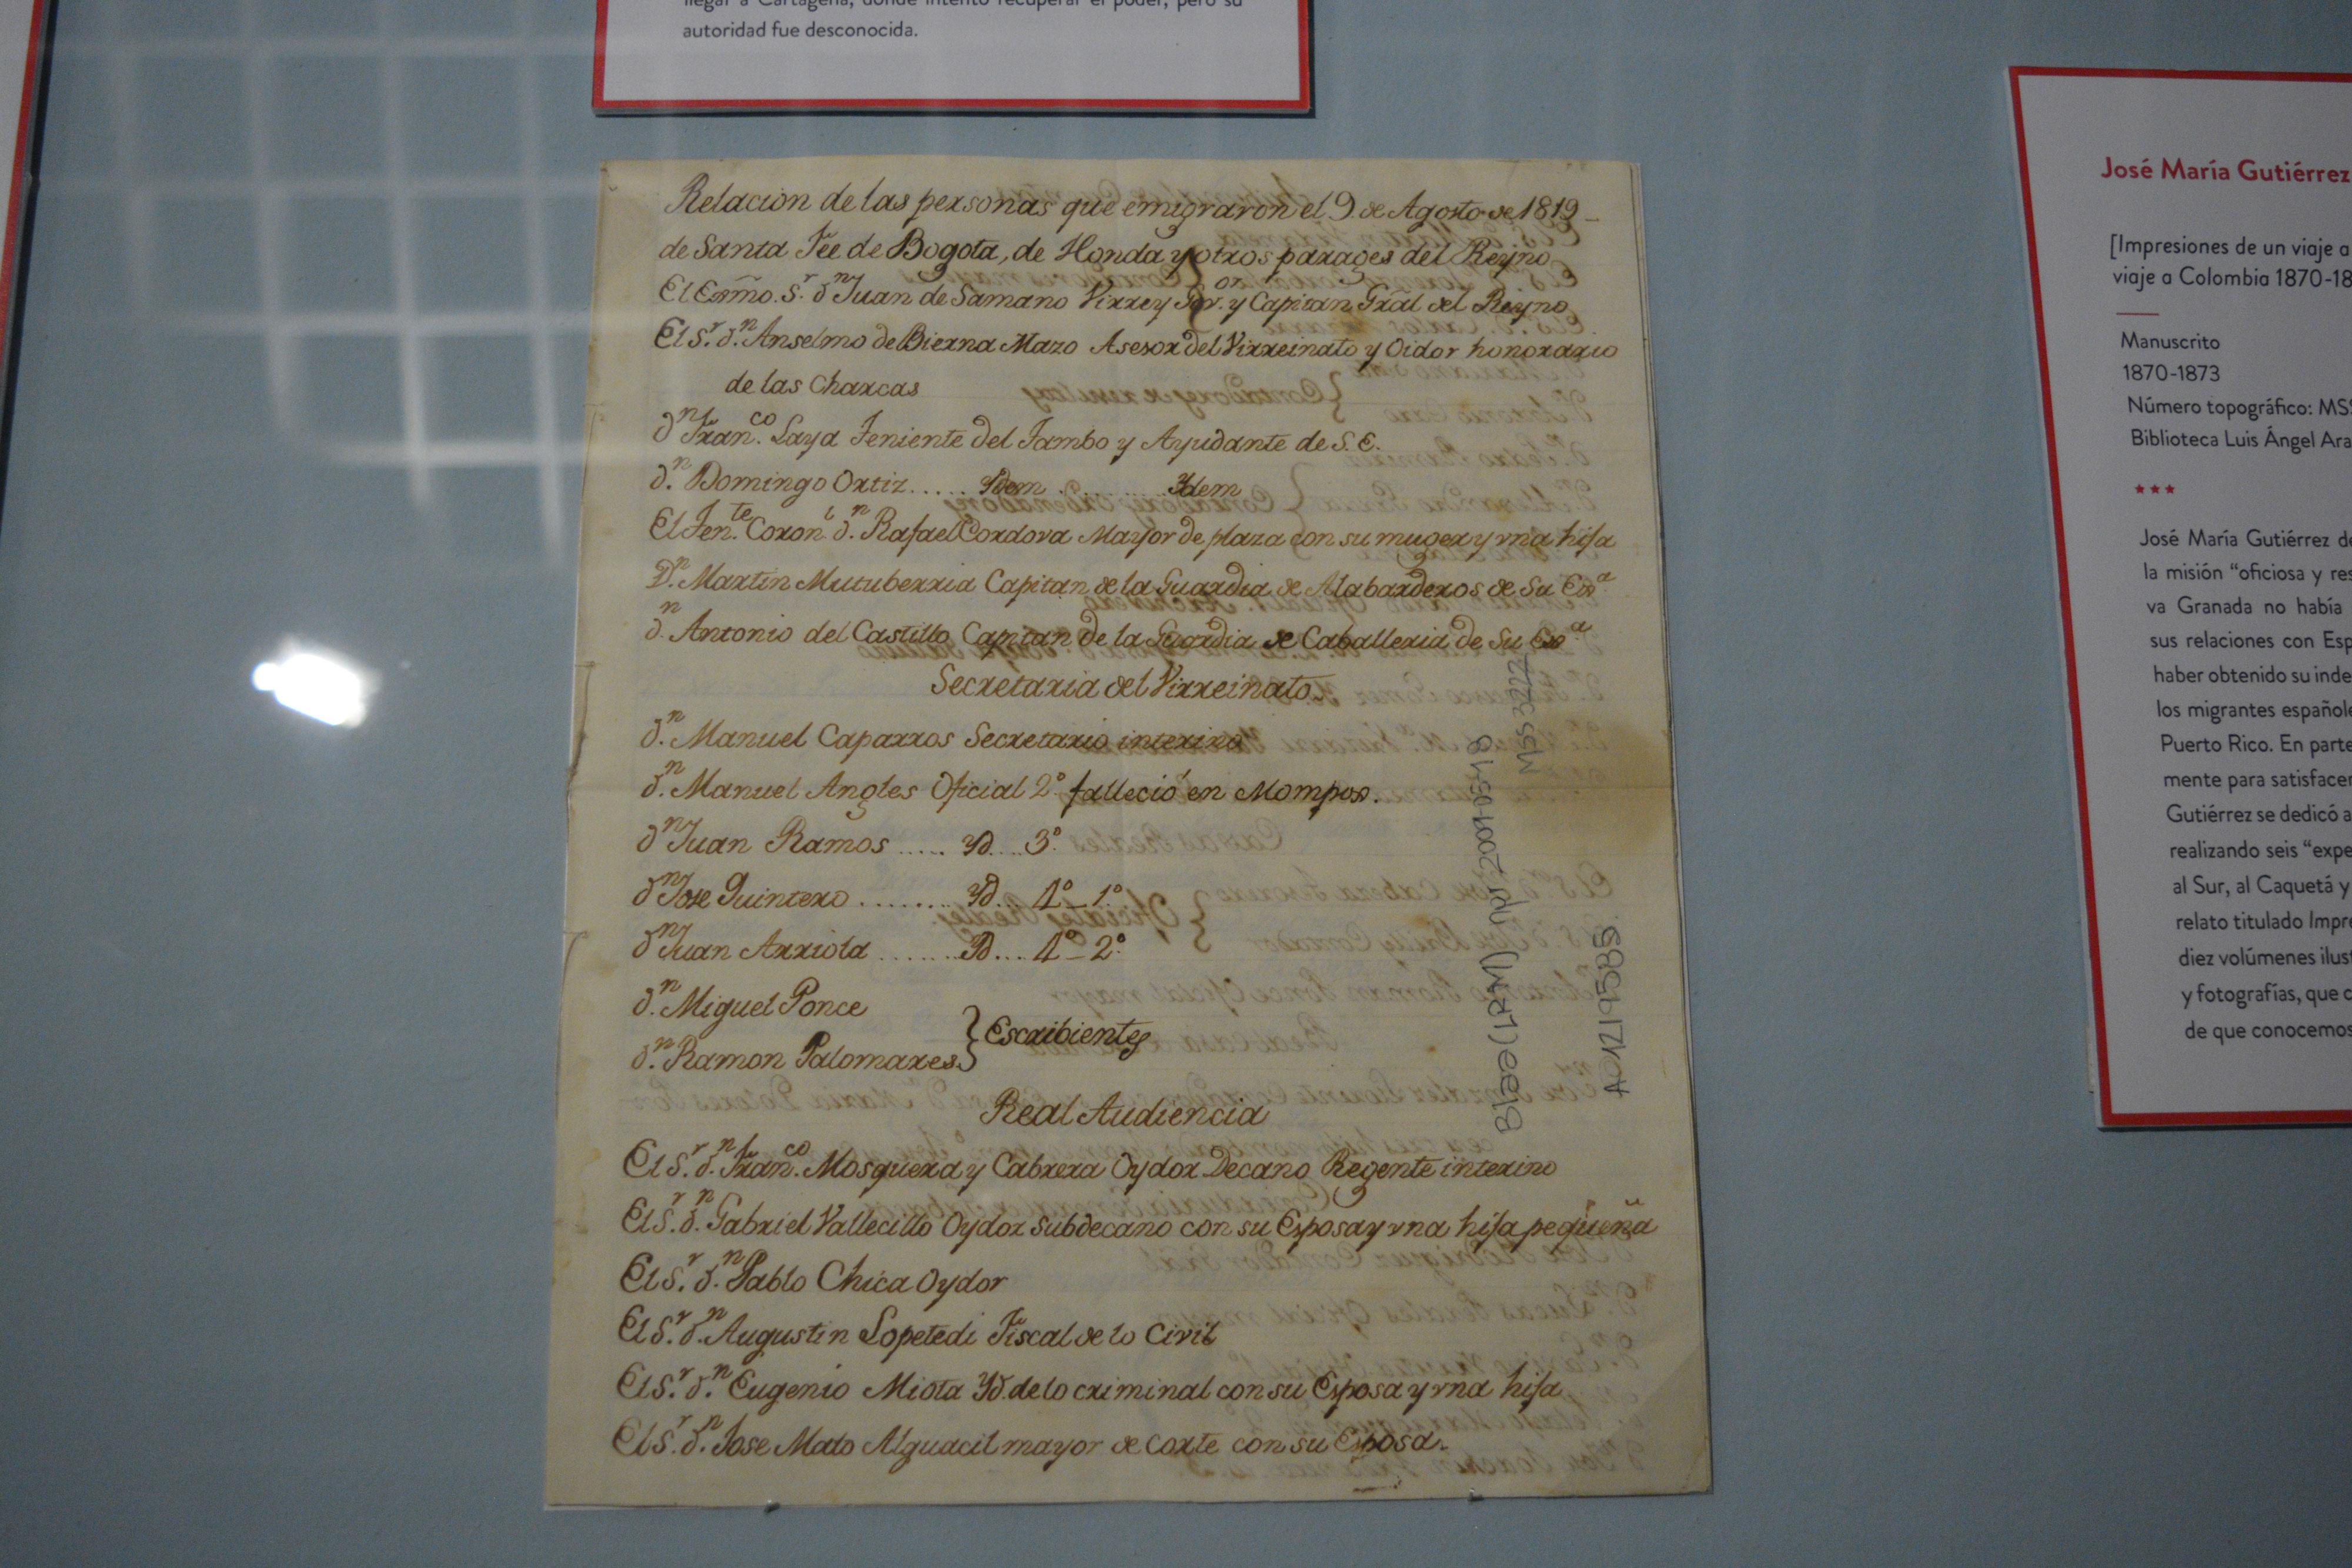 llegar a Cartagena, donde intentó recuperar el poder, pero su
autoridad fue desconocida.
Relacion de las personas que emigraron el 9 de Agosto de 1819
de Santa Fee de Bogota, de Honda y otros parages del Reyno
El Exmo. S.r d.n Juan de Samano Virrey Gov.or y Capitan Gral del Reyno
El S.r d.n Anselmo de Bierna Mazo Asesor del Virreinato y Oidor honorario
de las Charcas
d.n Fran.co Laya Teniente del Tambo y Ayudante de S. E.
d.n Domingo Ortiz...... Ydem ............ Ydem
El Ten.te Coron.l d.n Rafael Cordova Mayor de plaza con su muger y vna hija
D.n Martin Mutuberria Capitan de la Guardia de Alabarderos de Su Ex.a
d.n Antonio del Castillo Capitan de la Guardia de Caballeria de Su Ex.a
Secretaria del Virreinato
d.n Manuel Caparros Secretario interino
d.n Manuel Angles Oficial 2.º falleció en Mompox.
d.n Juan Ramos ..... Yd.... 3.º
d.n Jose Quintero ........ Yd... 4.º 1.º
d.n Juan Arriola ....... Yd.... 4.º 2.º
d.n Miguel Ponce
d.n Ramon Palomares } Escribientes
Real Audiencia
El S.r d.n Fran.co Mosquera y Cabrera Oydor Decano Regente interino
El S.r d.n Gabriel Vallecillo Oydor Subdecano con su Esposa y vna hija pequeña
El S.r d.n Pablo Chica Oydor
El S.r d.n Augustin Lopetedi Fiscal de lo Civil
El S.r d.n Eugenio Miota Yd. de lo criminal con su Esposa y vna hija
El S.r d.n Jose Mato Alguacil mayor de Corte con su Esposa.
MSS 3222
José María Gutiérrez
[Impresiones de un viaje a
viaje a Colombia 1870-18
Manuscrito
1870-1873
Número topográfico: MSS
Biblioteca Luis Ángel Ara
***
José María Gutiérrez de
la misión “oficiosa y res
va Granada no había
sus relaciones con Esp
haber obtenido su inde
los migrantes españole
Puerto Rico. En parte
mente para satisfacer
Gutiérrez se dedicó a
realizando seis “expe
al Sur, al Caquetá y
relato titulado Impre
diez volúmenes ilust
y fotografías, que c
de que conocemos